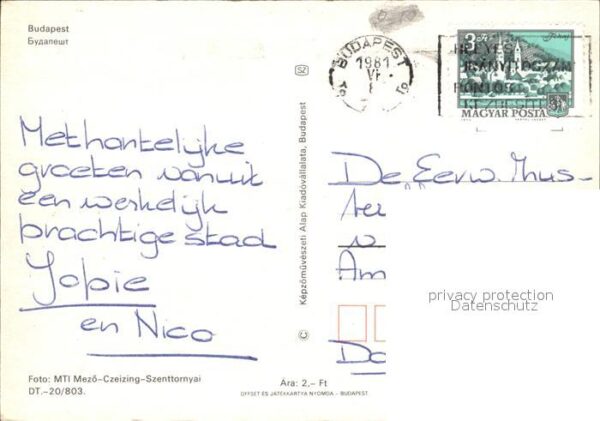 Budapest
Будапешт
BUDAPEST
1981
VI
8
19
3 Ft
HELYES A
IRÁNYÍTÓSZÁM
PONTOS
MAGYAR POSTA
SZ
Met hartelijke
groeten vanuit
een werkelijk
prachtige stad
Jopie
en Nico
Képzőművészeti Alap Kiadóvállalata, Budapest
De Eerw. Zus-
ter
Am
privacy protection
Datenschutz
Do
Foto: MTI Mező–Czeizing–Szenttornyai
DT.–20/803.
Ára: 2,– Ft
OFFSET ÉS JÁTÉKKÁRTYA NYOMDA – BUDAPEST